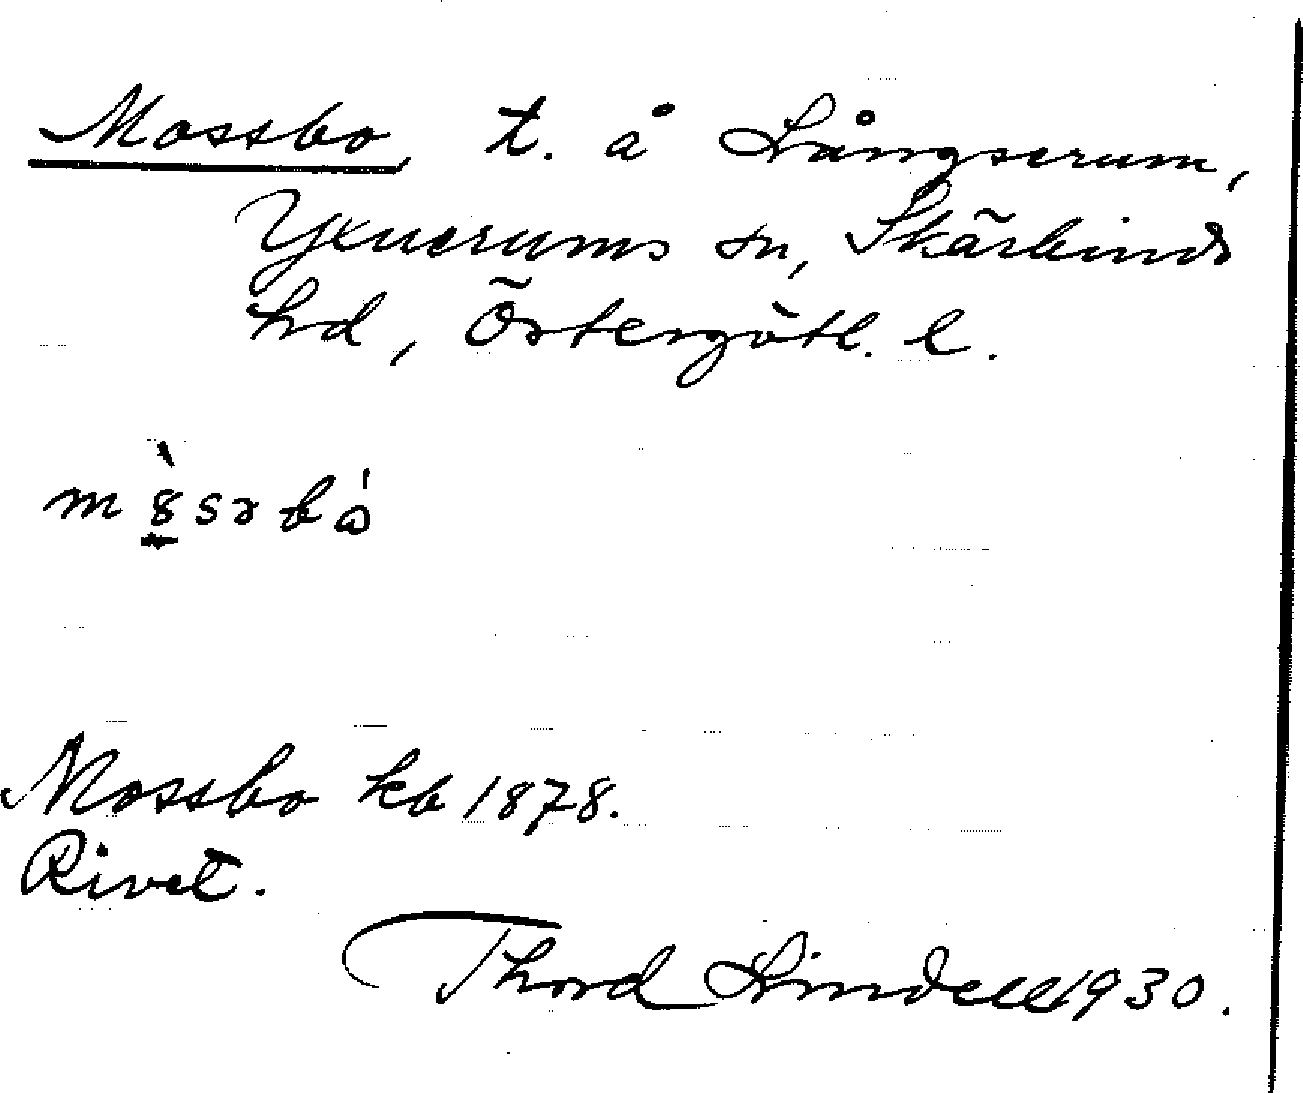 Mossbo, t. å Långserum,
Yxnerums sn, Skärkinds
hrd, Östergötl. l.
Mossbo kb 1878.
Rivet.
Thord Lindell 1930.